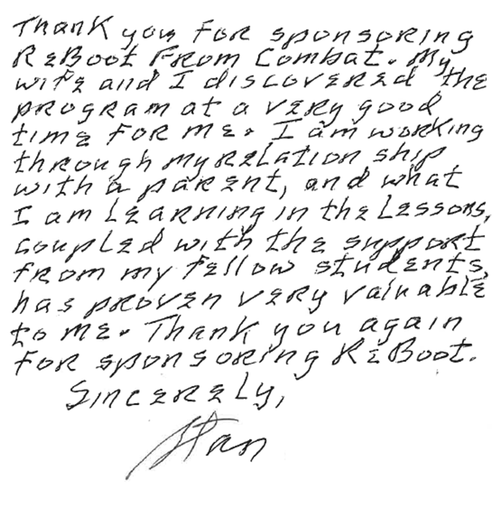 Thank you for sponsoring
ReBoot From Combat. My
wife and I discovered the
program at a very good
time for me. I am working
through my relation ship
with a parent, and what
I am learning in the lessons,
coupled with the support
from my fellow students,
has proven very valuable
to me. Thank you again
for sponsoring ReBoot.
Sincerely,
Stan